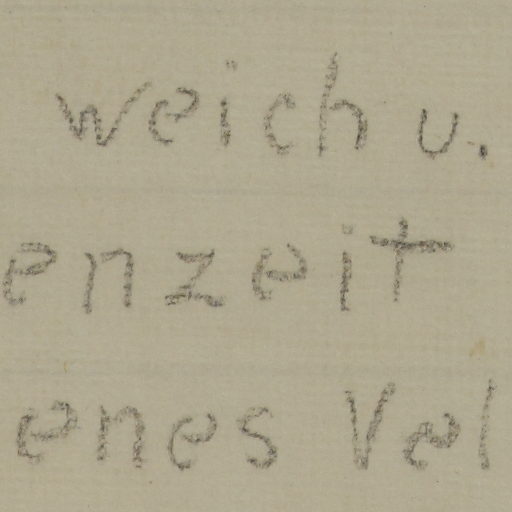 weich u.
enzeit
enes Vel